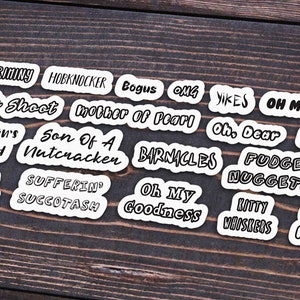 HOBKNOCKER
Bogus
OMG
YIKES
OH M
Shoot
Mother of Pearl
Oh, Dear
Son Of A
Nutcracker
BARNACLES
FUDGE
NUGGET
SUFFERIN'
SUCCOTASH
Oh My
Goodness
KITTY
WHISKERS